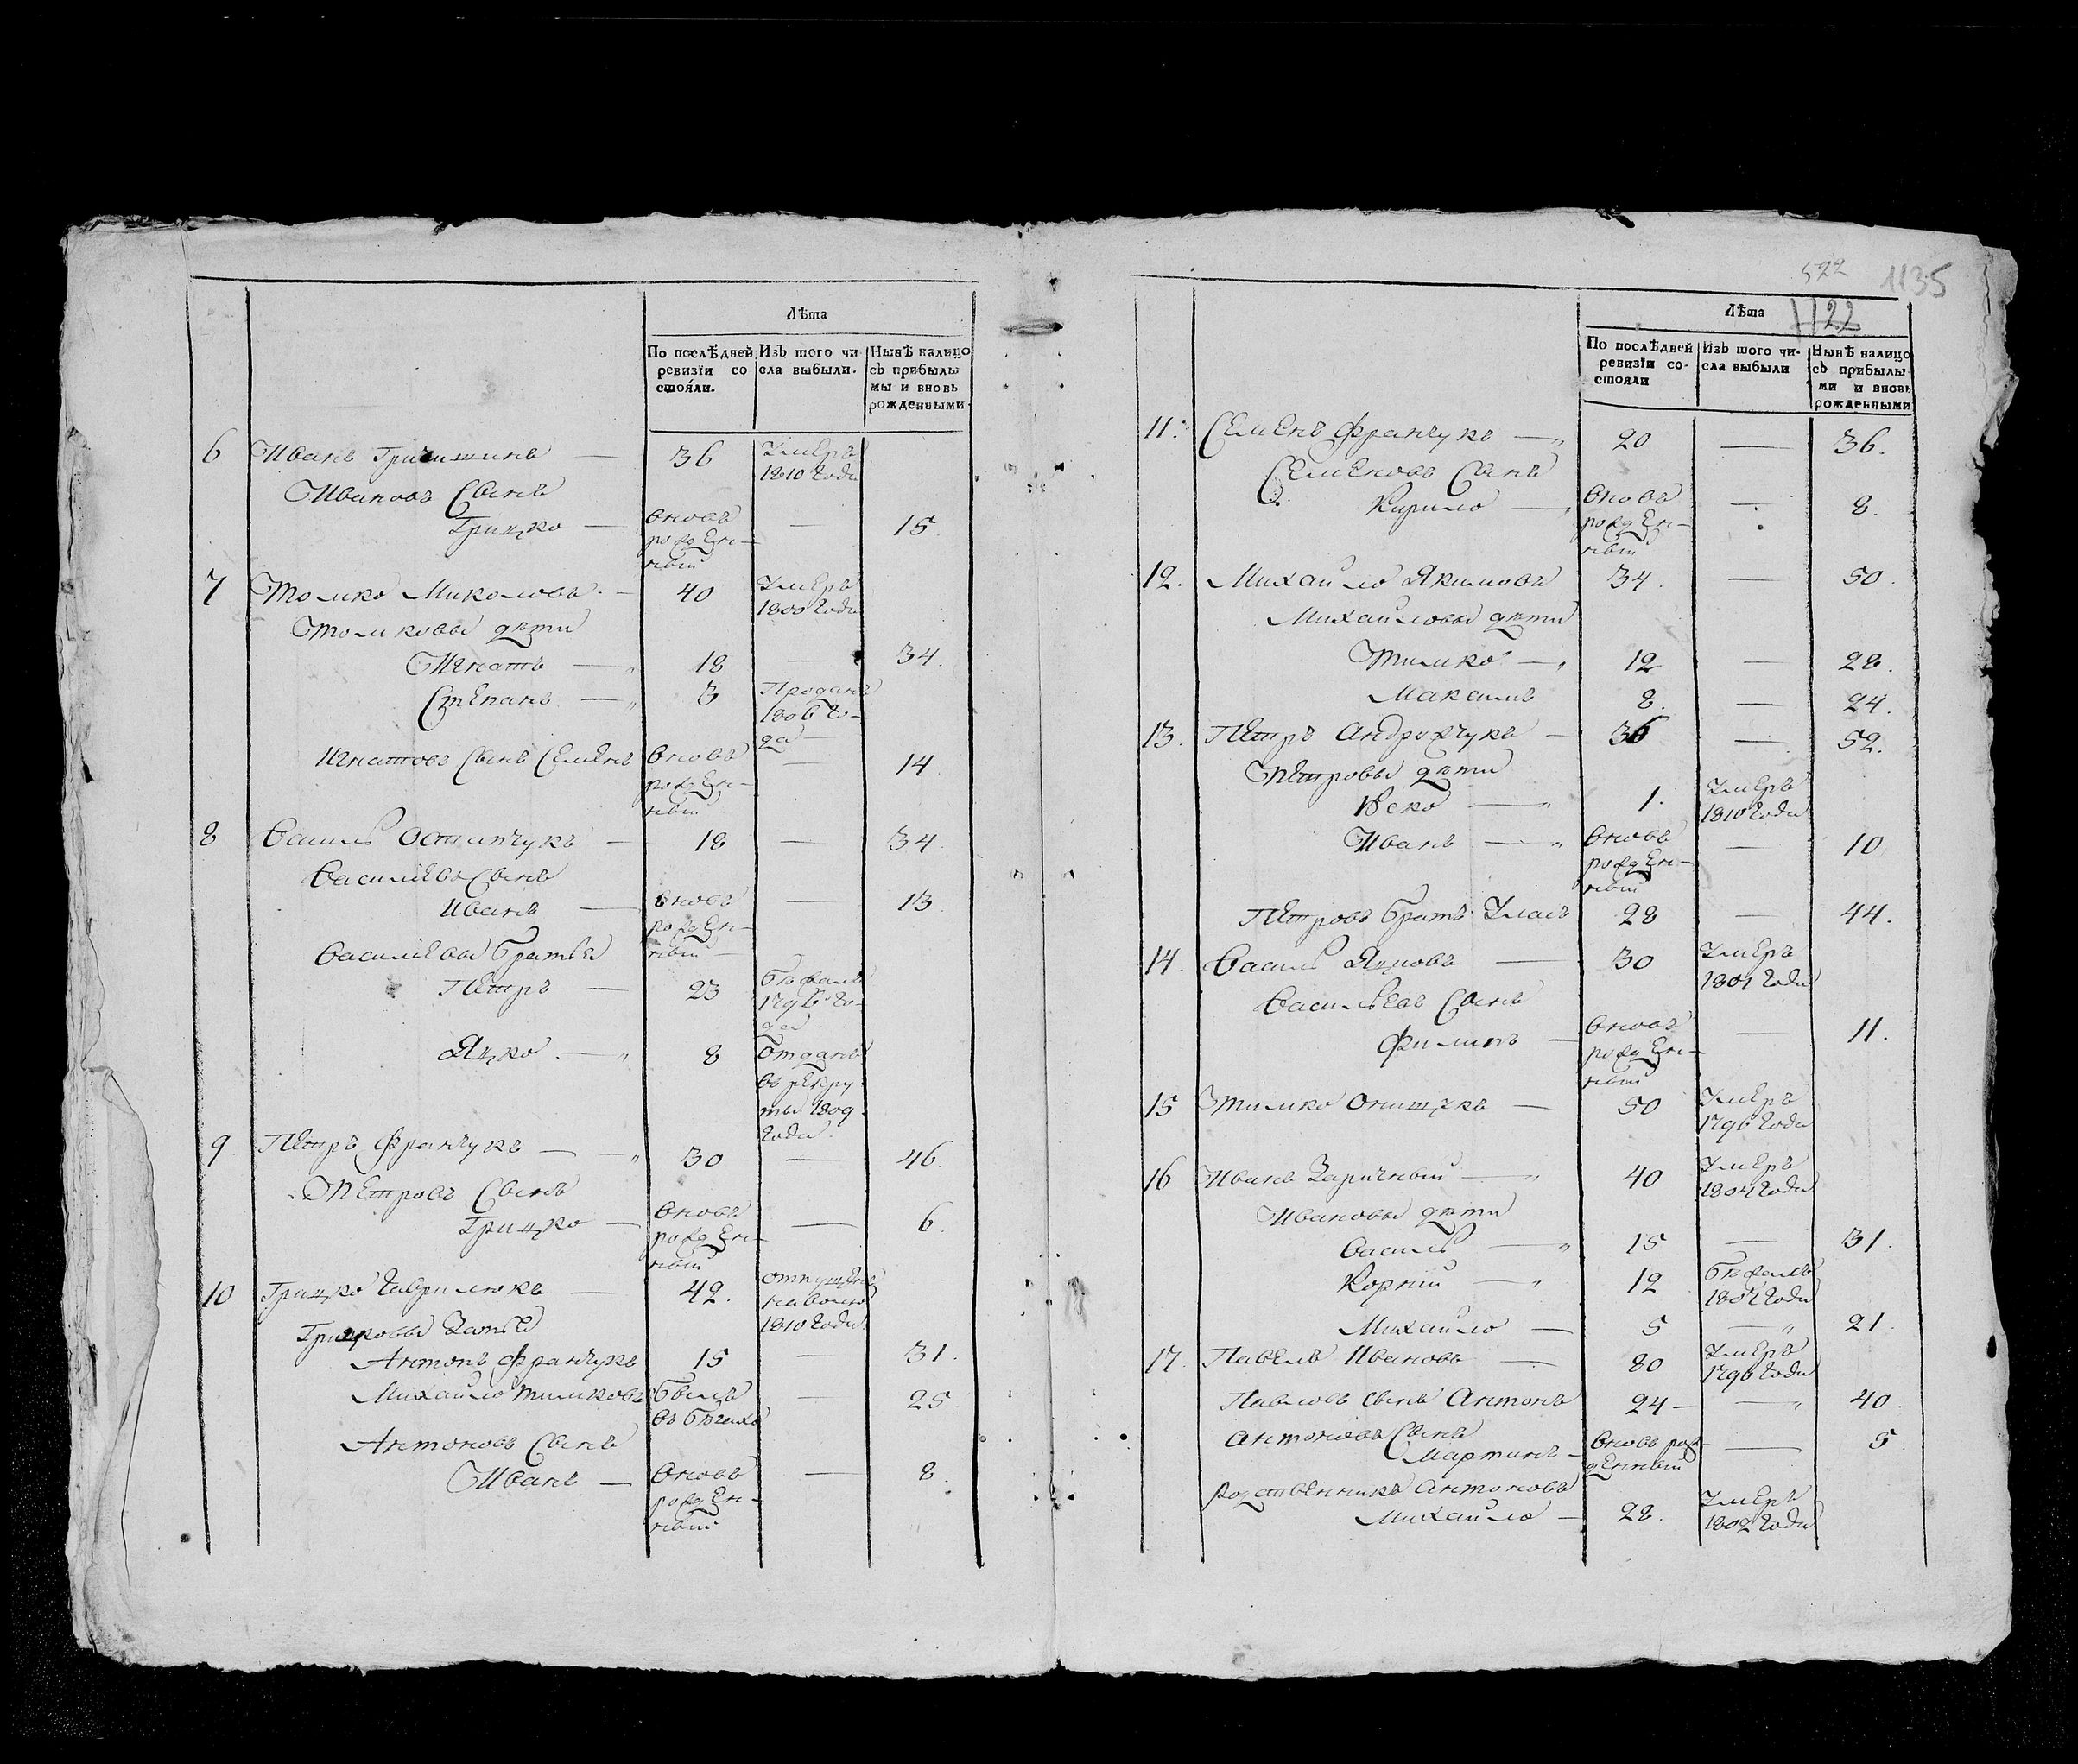 Лѣта
По послѣдней ревизіи состояли.
Изъ того числа выбыли.
Нынѣ налицо съ прибылыми и вновь рожденными
6 Иванъ Гричишинъ — 36 Умеръ 1810 года
Ивановъ Сынъ
Грицко — вновь рожденный — 15
7 Томко Миколовъ — 40 Умеръ 1800 года
Томковы дѣти
Игнатъ — 18 — 34.
Степанъ — 3 Проданъ 1806 года
Игнатовъ Сынъ Семенъ вновь рожденный — 14.
8 Василь Остапчукъ — 18 — 34.
Василіевъ Сынъ
Иванъ — вновь рожденный — 13
Василіевы братья
Петръ — 23 бѣжалъ 1796 года
Яцко — 8 отданъ въ рекруты 1809 года
9. Петръ Франчукъ — 30 — 46.
Петровъ Сынъ
Грицко — вновь рожденный — 6.
10 Грицко Гаврилюкъ — 42. отпущенъ наволю 1810 года
Грицковы Затья
Антонъ Франчукъ 15 — 31.
Михайло Тимковъ былъ въ бѣгахъ — 25.
Антоновъ Сынъ
Иванъ — вновь рожденный — 8.
522 1135
1122
Лѣта
По послѣдней ревизіи состояли
Изъ того числа выбыли
Нынѣ налицо съ прибылыми и вновь рожденными
11. Семенъ Франчукъ — 20 — 36.
Семеновъ Сынъ
Кирило — вновь рожденный — 8.
12. Михайло Якимовъ 34. — 50.
Михайловы дѣти
Тимко — 12 — 28.
Максимъ 8. — 24.
13. Петръ Андрохчукъ — 36 — 52.
Петровы дѣти
Іоско — 1. Умеръ 1810 года
Иванъ — вновь рожденный — 10
Петровъ братъ Уласъ 28 — 44.
14. Василь Яцковъ — 30 Умеръ 1801 года
Васильевъ Сынъ
Филипъ — вновь рожденный — 11.
15 Тимко Онищукъ — 50 Умеръ 1796 года
16 Иванъ Заричный — 40 Умеръ 1804 года
Ивановы дѣти
Василь — 15 — 31.
Корній — 12 бѣжалъ 1807 года
Михайло — 5 — 21.
17. Павелъ Ивановъ — 80 Умеръ 1796 года
Павловъ сынъ Антонъ 24 — 40.
Антоновъ Сынъ
Мартинъ — вновь рожденный — 5
Родственникъ Антоновъ
Михайло — 28. Умеръ 1802 года